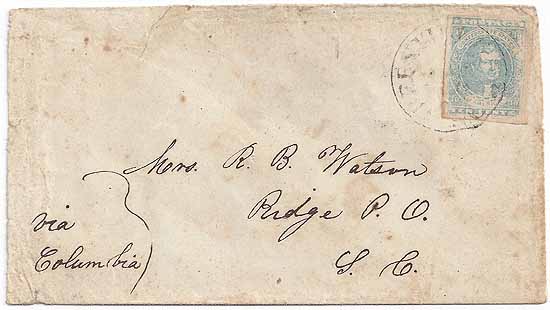 POSTAGE
Mrs. R. B. Watson
Ridge P. O.
S. C.
via
Columbia